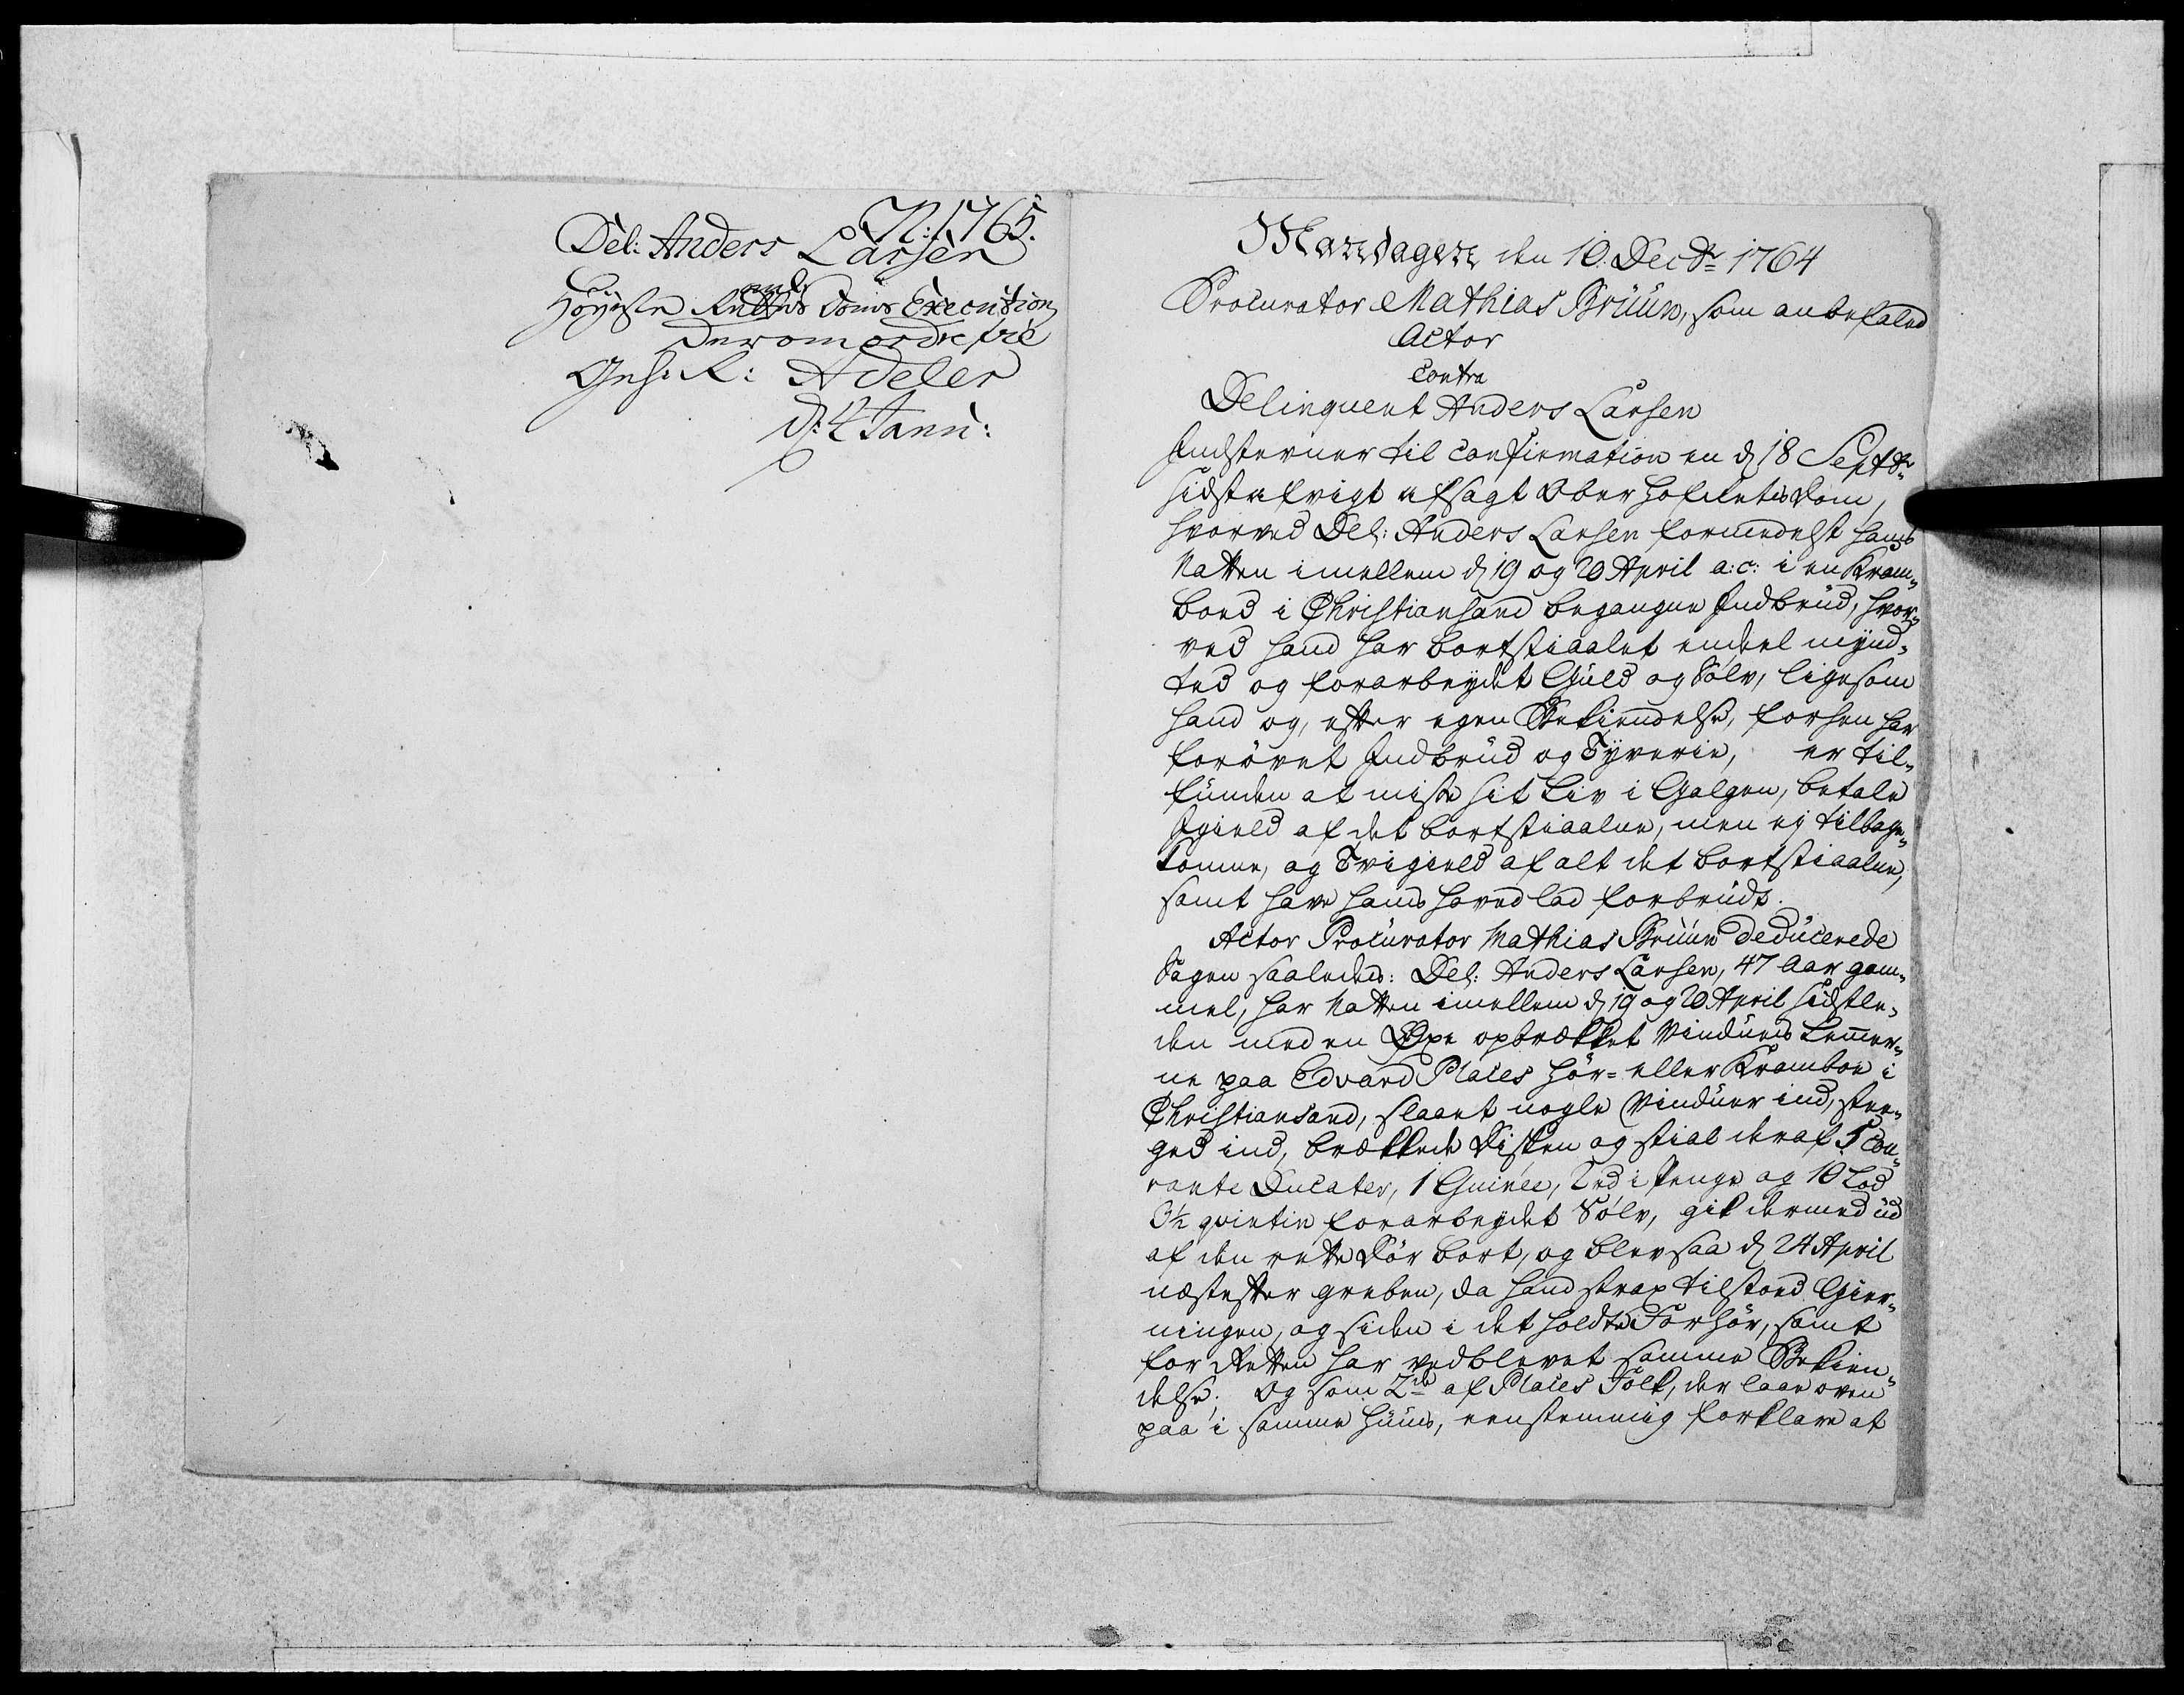 N: 1765.
Del: Anders Larsen
Høyeste Rettens Doms Execution
derom ordre fra
Geh: R: Adeler
d: 4 Janu:
Mandagen den 10. Decbr 1764
Procurator Mathias Brüün, som anbefaled
Actor
Contra
Delinquent Anders Larsen
Indstevner til Confirmation en d 18 Septbr
sidst afvigt afsagt Oberhofretts Dom,
hvorved Del: Anders Larsen formedelst hans
Natten imellem d 19 og 20 April a: c: i en Kram„
boed i Christiansand begangne Indbrüd, hvor„
ved hand har bortstiaalet endeel mynd„
ted og forarbeydet Guld og Sølv, ligesom
hand og, efter egen Bekiendelse, forhen har
forøvet Indbrüd og Tyverie, er til„
fünden at miste sit Liv i Galgen, betale
Igield af det bortstiaalne, men ej tilbage„
komne, og Tvigield af alt det bortstiaalne,
samt have hans hovedlod forbrüdt.
Actor Procurator Mathias Brüün deducerede
Sagen saaledes: Del: Anders Larsen, 47 Aar gam„
mel, har Natten imellem d 19 og 20 April sidstle„
den med en Øxe opbrækket Vindües Lemmer„
ne paa Edvard Places Hør= eller Kramboe i
Christiansand, slaaet nogle Vindüer ind, stee„
ged ind, brækkede Disken og stial deraf 5 Cou„
rante Ducater, 1 Guinèe, 2 rd i Penge og 10 Lod
3½ qvintin forarbeydet Sølv, gik dermed üd
af den rette Dør bort, og blev saa d 24 April
næstefter greben, da hand strax tilstoed Gier„
ningen, og siden i det holdte Forhør, samt
for Retten har vedblevet samme Bekien„
delse; Og som 2de af Places Folk, der laae oven
paa i samme Hüüs, eenstemmig forklare at